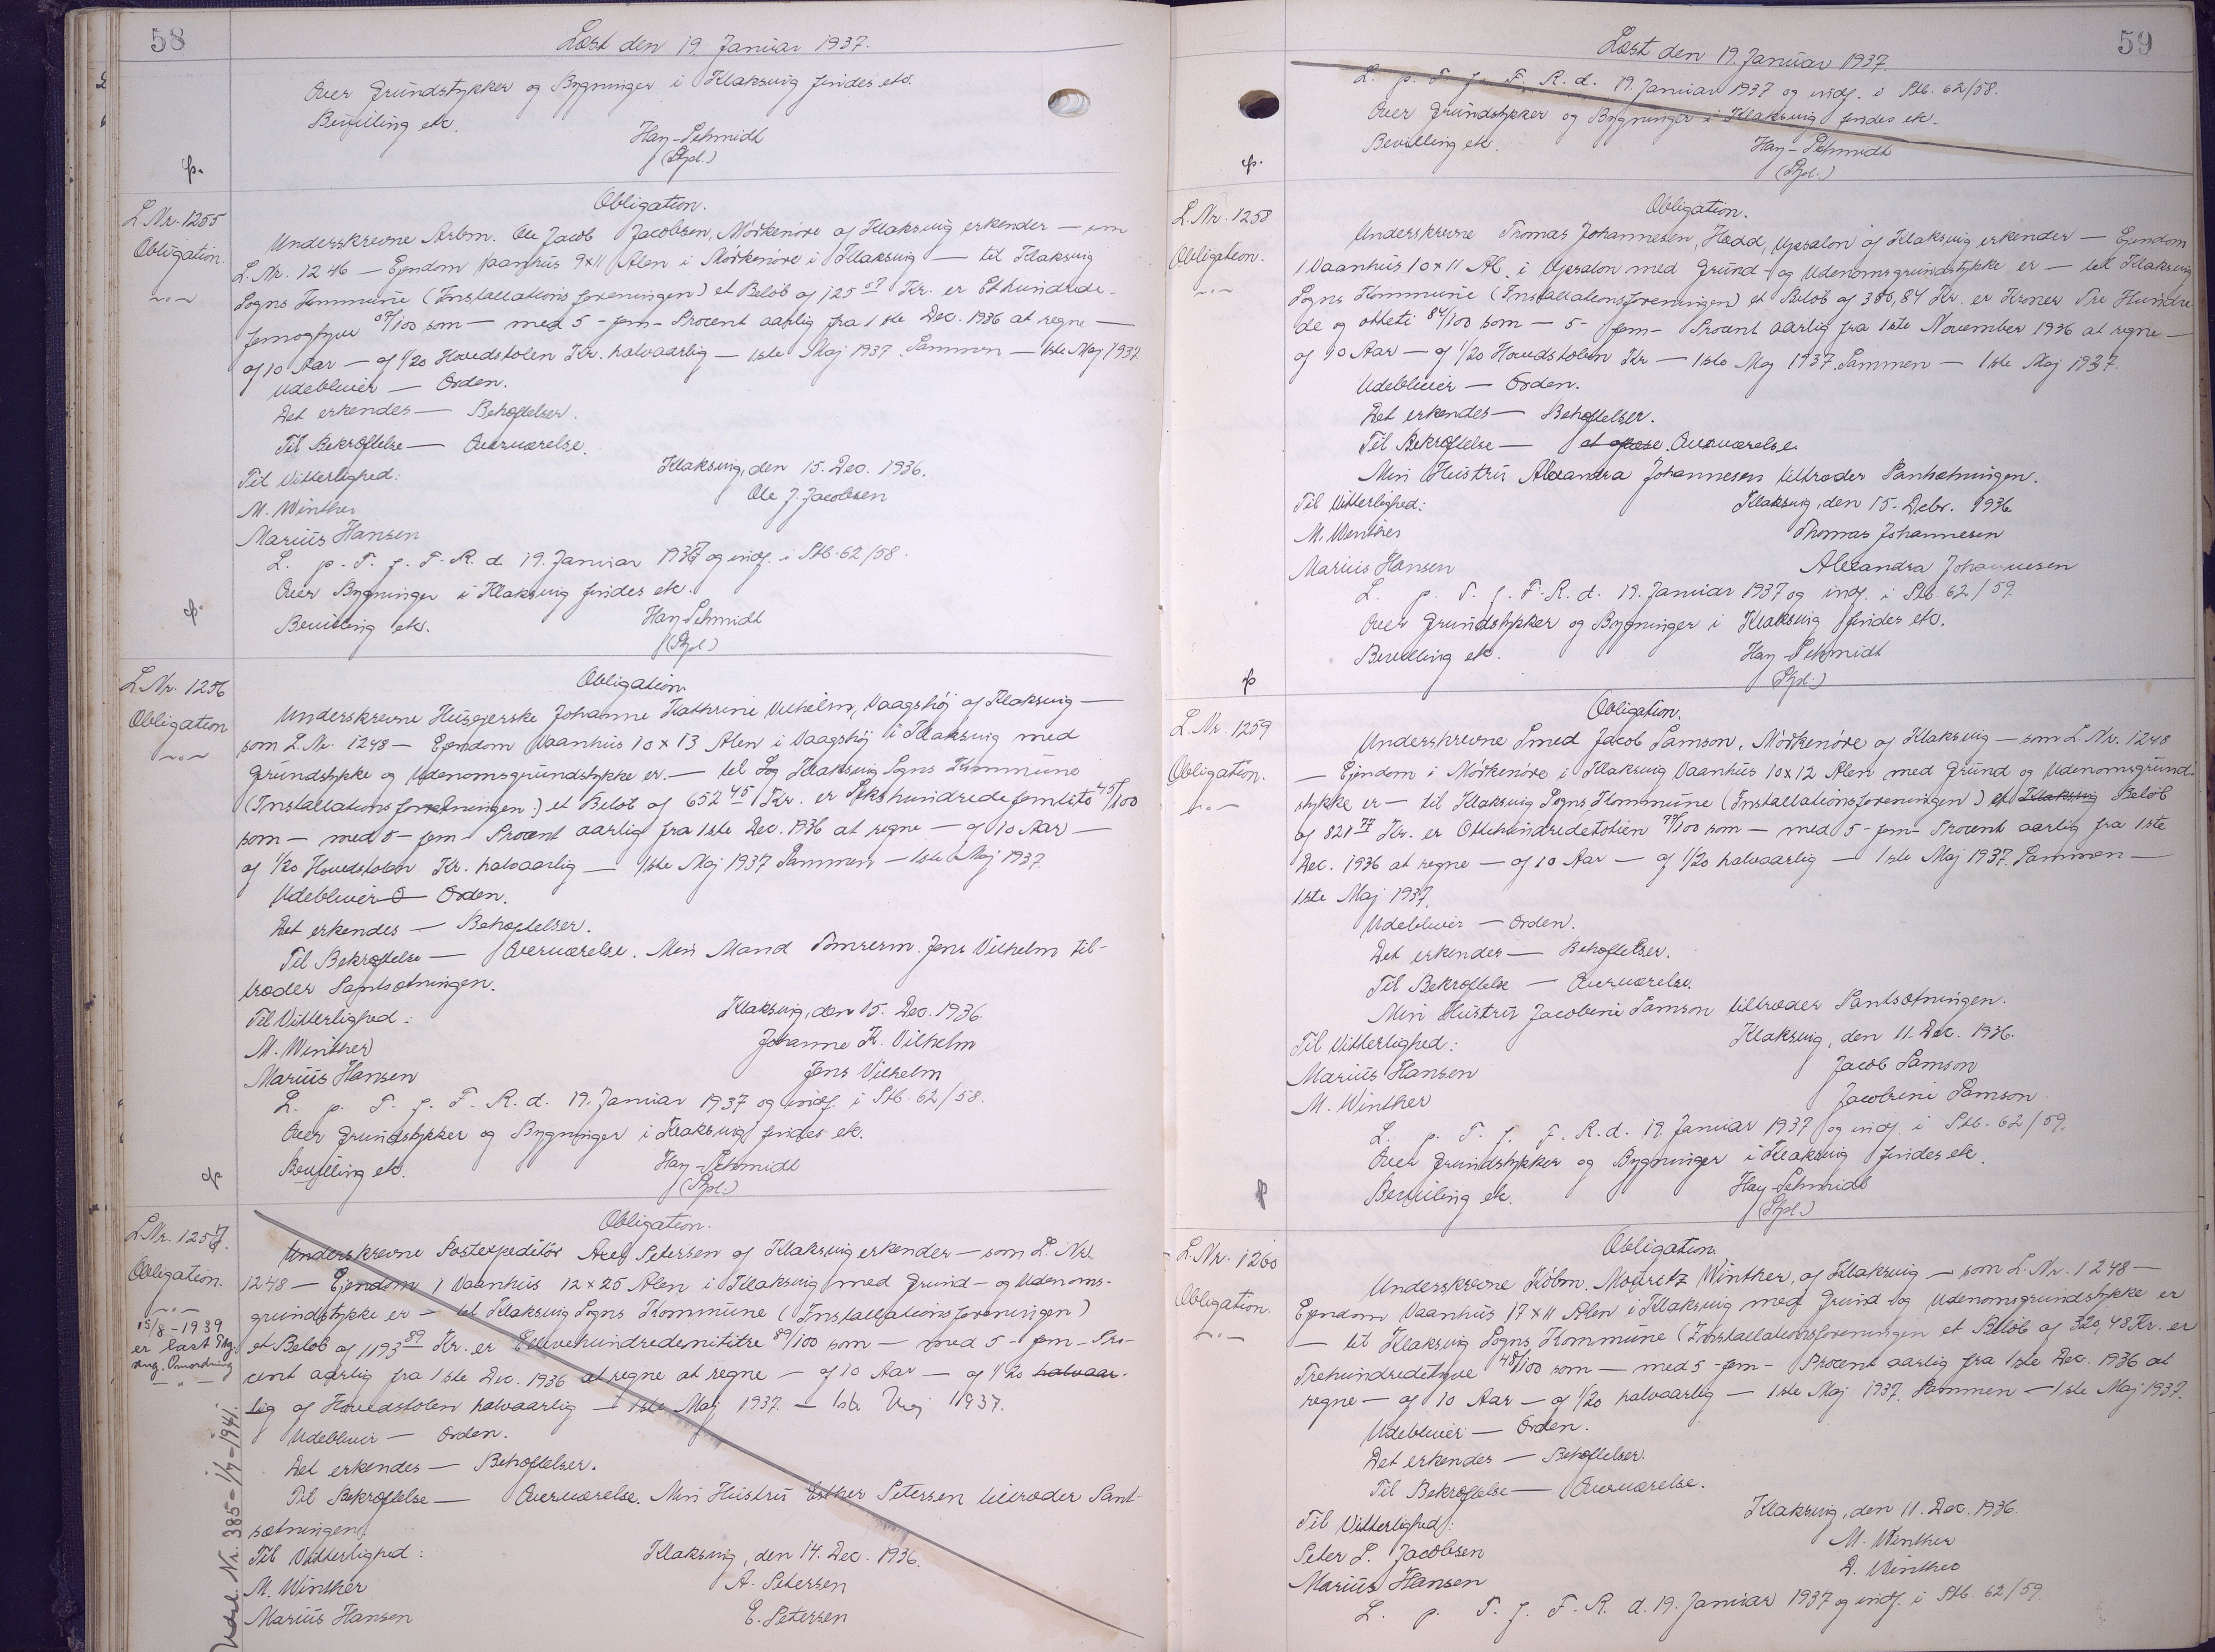 58
Læst den 19. Januar 1937.
Over Grundstykker og Bygninger i Klaksvig findes etc.
Bevilling etc.
Hay-Schmidt
(Spl.)
L. Nr. 1255
Obligation.
Obligation.
Underskrevne Arbm. Ole Jacob Jacobsen, Mörkenöre af Klaksvig erkender — som
L. Nr. 1246 — Ejendom Vaanhus 9x11 Alen i Mörkenöre i Klaksvig — til Klaksvig
Sogns Kommune (Installationsforeningen) et Belöb af 125 07 Kr. er Ethundrede-
femogtyve 07/100 som — med 5 - fem - Procent aarlig fra 1ste Dec. 1936 at regne —
af 10 Aar — af 1/20 Hovedstolen Kr. halvaarlig — 1ste Maj 1937. Sammen — 1ste Maj 1937.
Udebliver — Orden.
Det erkendes — Behæftelser.
Til Bekræftelse — Overværelse.
Til Vitterlighed:
Klaksvig, den 15. Dec. 1936.
M. Winther
Ole J. Jacobsen
Marius Hansen
L. p. T. f. F. R. d. 19. Januar 1937 og indf. i Skb. 62/58.
Over Bygninger i Klaksvig findes etc.
Bevilling etc.
Hay-Schmidt
(Spl.)
L. Nr. 1256
Obligation
Obligation.
Underskrevne Husejerske Johanne Kathrine Vilhelm, Vaagshöj af Klaksvig —
som L. Nr. 1248 — Ejendom Vaanhus 10 x 13 Alen i Vaagshöj i Klaksvig med
Grundstykke og Udenomsgrundstykke er. — til Sog Klaksvig Sogns Kommune
(Installationsforeningen) et Belöb af 652 45 Kr. er Sekshundredefemtito 45/100
som — med 5 - fem - Procent aarlig fra 1ste Dec. 1936 at regne — af 10 Aar —
af 1/20 Hovedstolen Kr. halvaarlig — 1ste Maj 1937 Sammen — 1ste Maj 1937.
Udebliver O Orden.
Det erkendes — Behæftelser.
Til Bekræftelse — Overværelse. Min Mand Tömrerm. Jens Vilhelm til-
træder Pantsætningen.
Til Vitterlighed:
Klaksvig, den 15. Dec. 1936.
M. Winther
Johanne K. Vilhelm
Marius Hansen
Jens Vilhelm
L. p. T. f. F. R. d. 19. Januar 1937 og indf. i Skb. 62/58.
Over Grundstykker og Bygninger i Klaksvig findes etc.
Bevilling etc.
Hay-Schmidt
(Spl.)
L. Nr. 1257.
Obligation.
15/8-1939
er læst
Obligation.
Underskrevne Postexpeditör Axel Petersen af Klaksvig erkender — som L. Nr.
1248 — Ejendom 1 Vaanhus 12 x 25 Alen i Klaksvig med Grund- og Udenoms-
grundstykke er — til Klaksvig Sogns Kommune (Installationsforeningen)
et Belöb af 1193 89 Kr. er Ellevehundredenititre 89/100 som — med 5 - fem - Pro-
cent aarlig fra 1ste Dec. 1936 at regne at regne — af 10 Aar — af 1/20 halvaar-
lig af Hovedstolen halvaarlig — 1ste Maj 1937. — 1ste Maj 1937.
Udebliver — Orden.
Det erkendes — Behæftelser.
Til Bekræftelse — Overværelse. Min Hustru Esther Petersen tiltræder Pant-
sætningen.
Til Vitterlighed:
Klaksvig, den 14. Dec. 1936.
M. Winther
A. Petersen
Marius Hansen
E. Petersen
Nr. 385 - 1/7-1941.
59
Læst den 19. Januar 1937.
L. p. T. f. F. R. d. 19. Januar 1937 og indf. i Skb. 62/58.
Over Grundstykker og Bygninger i Klaksvig findes etc.
Bevilling etc.
Hay-Schmidt
(Spl.)
L. Nr. 1258
Obligation.
Obligation.
Underskrevne Thomas Johannesen, Hædd, Uppsalon af Klaksvig erkender — Ejendom
1 Vaanhus 10 x 11 Al. i Upsalon med Grund- og Udenomsgrundstykke er — til Klaksvig
Sogns Kommune (Installationsforeningen) et Belöb af 380,84 Kr. er Kroner Tre Hundre-
de og otteti 84/100 som — 5 - fem - Procent aarlig fra 1ste November 1936 at regne —
af 10 Aar — af 1/20 Hovedstolen Kr — 1ste Maj 1937. Sammen — 1ste Maj 1937.
Udebliver — Orden.
Det erkendes — Behæftelser.
Til Bekræftelse — Overværelse.
Min Hustru Alexandra Johannesen tiltræder Pantsætningen.
Til Vitterlighed:
Klaksvig, den 15. Debr. 1936
M. Winther
Thomas Johannesen
Marius Hansen
Alexandra Johannesen
L. p. T. f. F. R. d. 19. Januar 1937 og indf. i Skb. 62/59.
Over Grundstykker og Bygninger i Klaksvig findes etc.
Bevilling etc.
Hay-Schmidt
(Spl.)
L. Nr. 1259
Obligation.
Obligation.
Underskrevne Smed Jacob Samson, Mörkenöre af Klaksvig — som L. Nr. 1248
— Ejendom i Mörkenöre i Klaksvig Vaanhus 10x12 Alen med Grund og Udenomsgrund-
stykke er — til Klaksvig Sogns Kommune (Installationsforeningen) et Klaksvig Belöb
af 821 77 Kr. er Ottehundredetotien 77/100 som — med 5 - fem - Procent aarlig fra 1ste
Dec. 1936 at regne — af 10 Aar — af 1/20 halvaarlig — 1ste Maj 1937. Sammen —
1ste Maj 1937.
Udebliver — Orden.
Det erkendes — Behæftelser.
Til Bekræftelse — Overværelse.
Min Hustru Jacobine Samson tiltræder Pantsætningen.
Til Vitterlighed:
Klaksvig, den 11. Dec. 1936.
Marius Hansen
Jacob Samson
M. Winther
Jacobine Samson
L. p. T. f. F. R. d. 19. Januar 1937 og indf. i Skb. 62/59.
Over Grundstykker og Bygninger i Klaksvig findes etc.
Bevilling etc.
Hay-Schmidt
(Spl.)
L. Nr. 1260
Obligation.
Obligation.
Underskrevne Köbm. Mouretz Winther, af Klaksvig — som L. Nr. 1248 —
Ejendom Vaanhus 17 x 11 Alen i Klaksvig med Grund- og Udenomsgrundstykke er
— til Klaksvig Sogns Kommune (Installationsforeningen et Belöb af 320,48 Kr. er
Trehundredetyve 48/100 som — med 5 - fem - Procent aarlig fra 1ste Dec. 1936 at
regne — af 10 Aar — af 1/20 halvaarlig — 1ste Maj 1937. Sammen — 1ste Maj 1937.
Udebliver — Orden.
Det erkendes — Behæftelser.
Til Bekræftelse — Overværelse.
Til Vitterlighed:
Klaksvig, den 11. Dec. 1936
Peter L. Jacobsen
M. Winther
Marius Hansen
D. Winther
L. p. T. f. F. R. d. 19. Januar 1937 og indf. i Skb. 62/59.